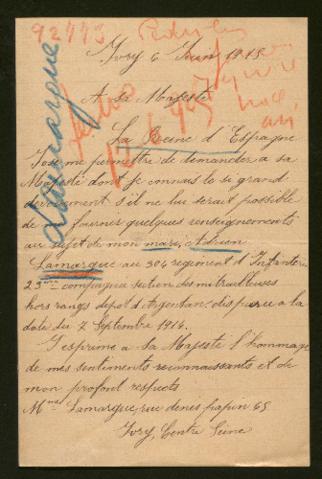 92773
Ivry 6 Juin 1915
A Sa Majesté
La Reine d'Espagne
J'ose me permettre de demander a sa
Majesté dont je connais le si grand
devouement s'il ne lui serait possible
de fournir quelques renseignements
au sujet de mon mari, Adrien
Lamarque au 304 regiment d'Infanterie
23me compagnie section des mitrailleuses
hors rangs depot d'Argentan, disparu a la
date du 7 Septembre 1914.
J'esprime a Sa Majesté l'hommage
de mes sentiments reconnaissants et de
mon profont respects
Mme Lamarque, rue denis papin 65
Ivry, Centre Seine
Lamarque